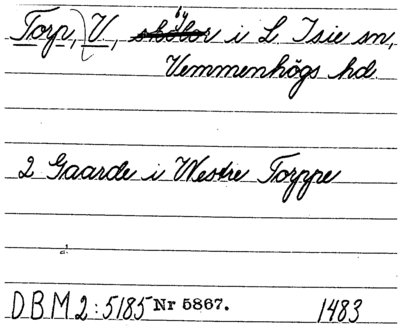 Torp, V., by i L. Isie sn,
Vemmenhögs hd.
2 Gaarde i Westre Torppe
DBM 2:5185 Nr 5867. 1483